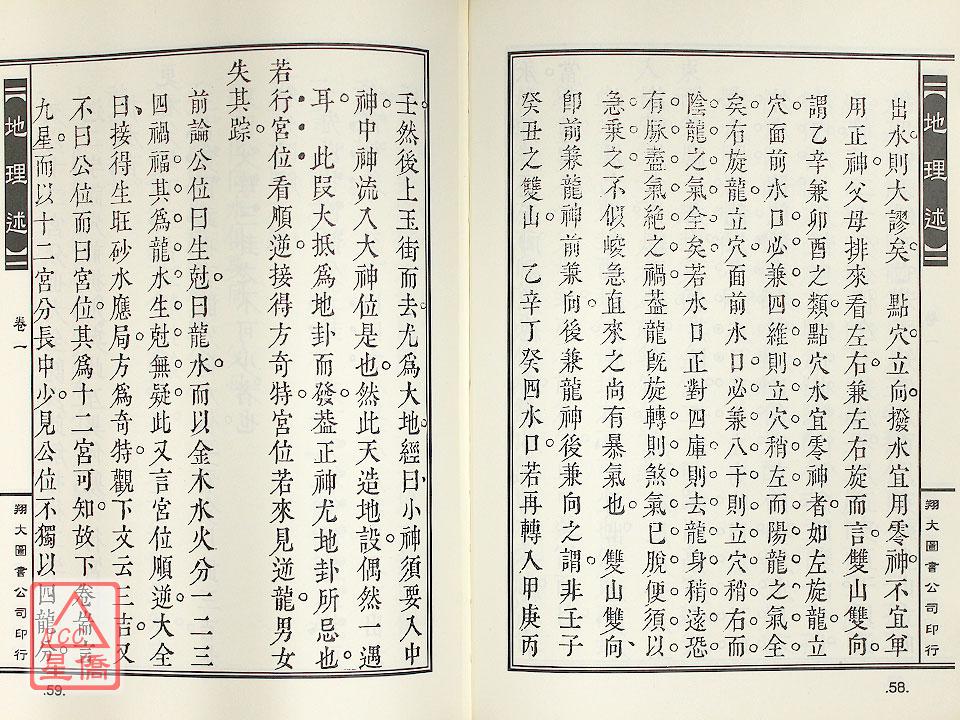 【地理述】
翔大圖書公司印行
出水則大謬矣 點穴立向撥水宜用零神不宜單
用正神父母排來看左右兼左右旋而言雙山雙向
謂乙辛兼卯酉之類點穴水宜零神者如左旋龍立
穴面前水口必兼四維則立穴稍左而陽龍之氣全
矣右旋龍立穴面前水口必兼八干則立穴稍右而
陰龍之氣全矣若水口正對四庫則去龍身稍遠恐
有脈盡氣絕之禍葢龍旣旋轉則煞氣巳脫便須以
急乘之不似峻急直來之尚有暴氣也 雙山雙向
卽前兼龍神前兼向後兼龍神後兼向之謂非壬子
癸丑之雙山 乙辛丁癸四水口若再轉入甲庚丙
.58.
壬然後上玉街而去尤爲大地經曰小神須要入中
神中神流入大神位是也然此天造地設偶然一遇
耳 此段大抵爲地卦而發葢正神尤地卦所忌也
若行宮位看順逆接得方奇特宮位若來見逆龍男女
失其踪
前論公位曰生尅曰龍水而以金木水火分一二三
四禍福其爲龍水生尅無疑此又言宮位順逆大全
曰接得生旺砂水應局方爲奇特觀下文云三吉又
不曰公位而曰宮位其爲十二宮可知故下卷論言
九星而以十二宮分長中少見公位不獨以四龍分
【地理述】
卷一
翔大圖書公司印行
.59.
ICC
星僑